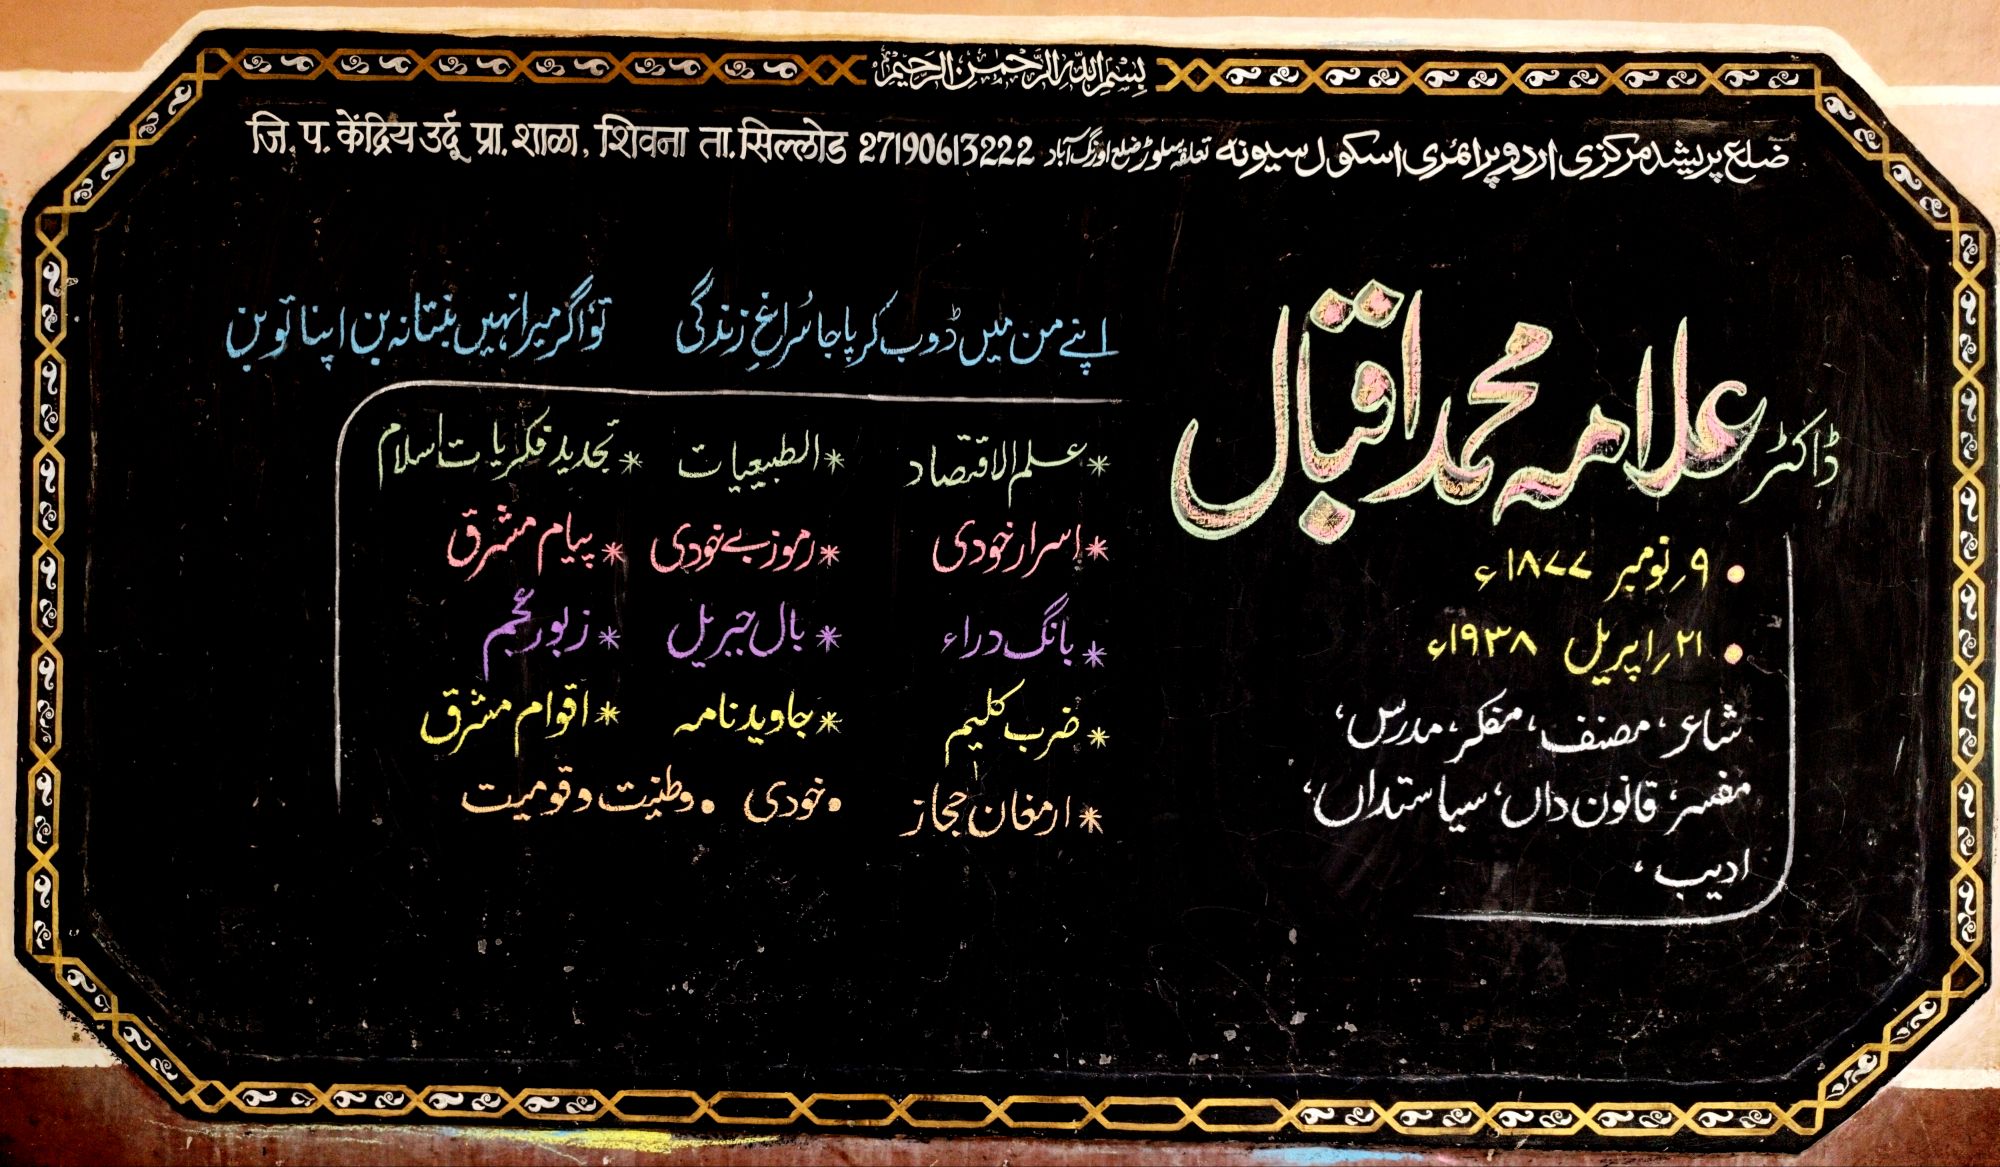 بِسْمِ اللهِ الرَّحْمٰنِ الرَّحِيْمِ
ضلع پریشد مرکزی اردو پرائمری اسکول سیونہ تعلقہ سلوڑ ضلع اورنگ آباد 27190613222 जि. प. केंद्रिय उर्दू प्रा. शाळा, शिवना ता. सिल्लोड
ڈاکٹر علامہ محمد اقبال
• ۹؍ نومبر ۱۸۷۷ء
• ۲۱؍ اپریل ۱۹۳۸ء
شاعر، مصنف، مفکر، مدرس،
مفسر، قانون داں، سیاستداں،
ادیب،
اپنے من میں ڈوب کر پاجا سُراغِ زندگی تؤ اگر میرا نہیں بنتا نہ بن اپنا تو بن
* علم الاقتصاد * الطبیعیات * تجدید فکریات اسلام
* اسرار خودی * رموز بے خودی * پیام مشرق
* بانگ دراء * بال جبریل * زبور عجم
* ضرب کلیم * جاوید نامہ * اقوام مشرق
* ارمغان حجاز • خودی • وطنیت و قومیت